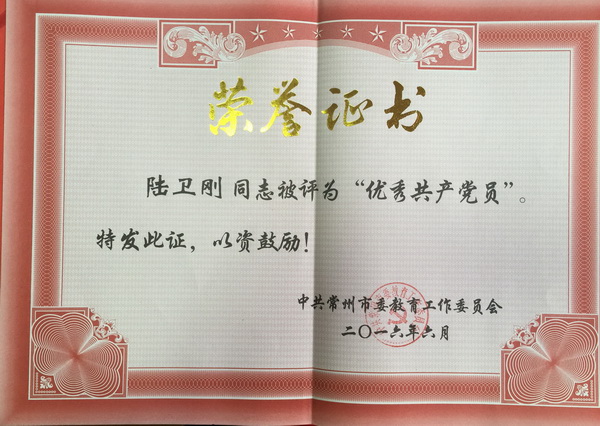 荣誉证书
陆卫刚 同志被评为“优秀共产党员”。
特发此证，以资鼓励！
中共常州市委教育工作委员会
二〇一六年六月